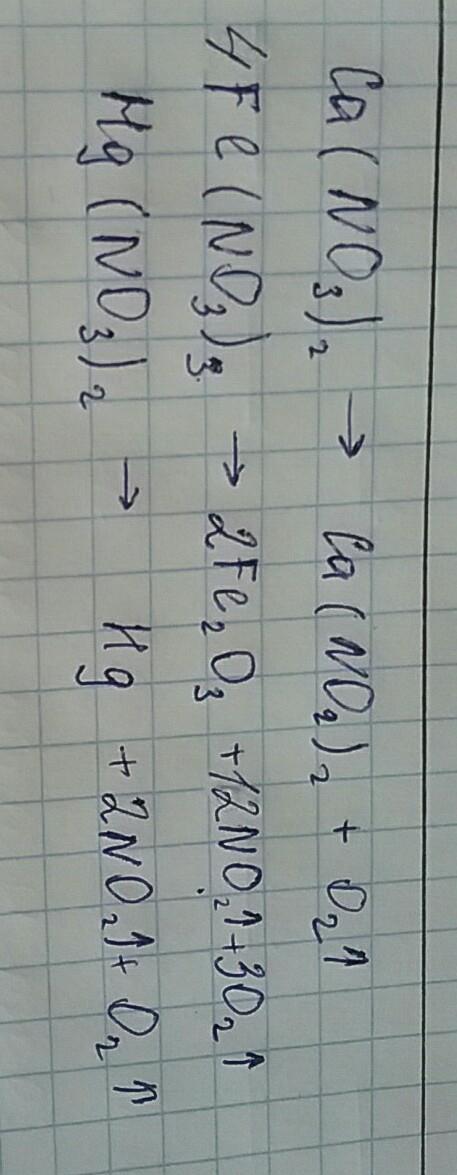 Ca(NO₃)₂ → Ca(NO₂)₂ + O₂↑
4Fe(NO₃)₃ → 2Fe₂O₃ + 12NO₂↑ + 3O₂↑
Hg(NO₃)₂ → Hg + 2NO₂↑ + O₂↑